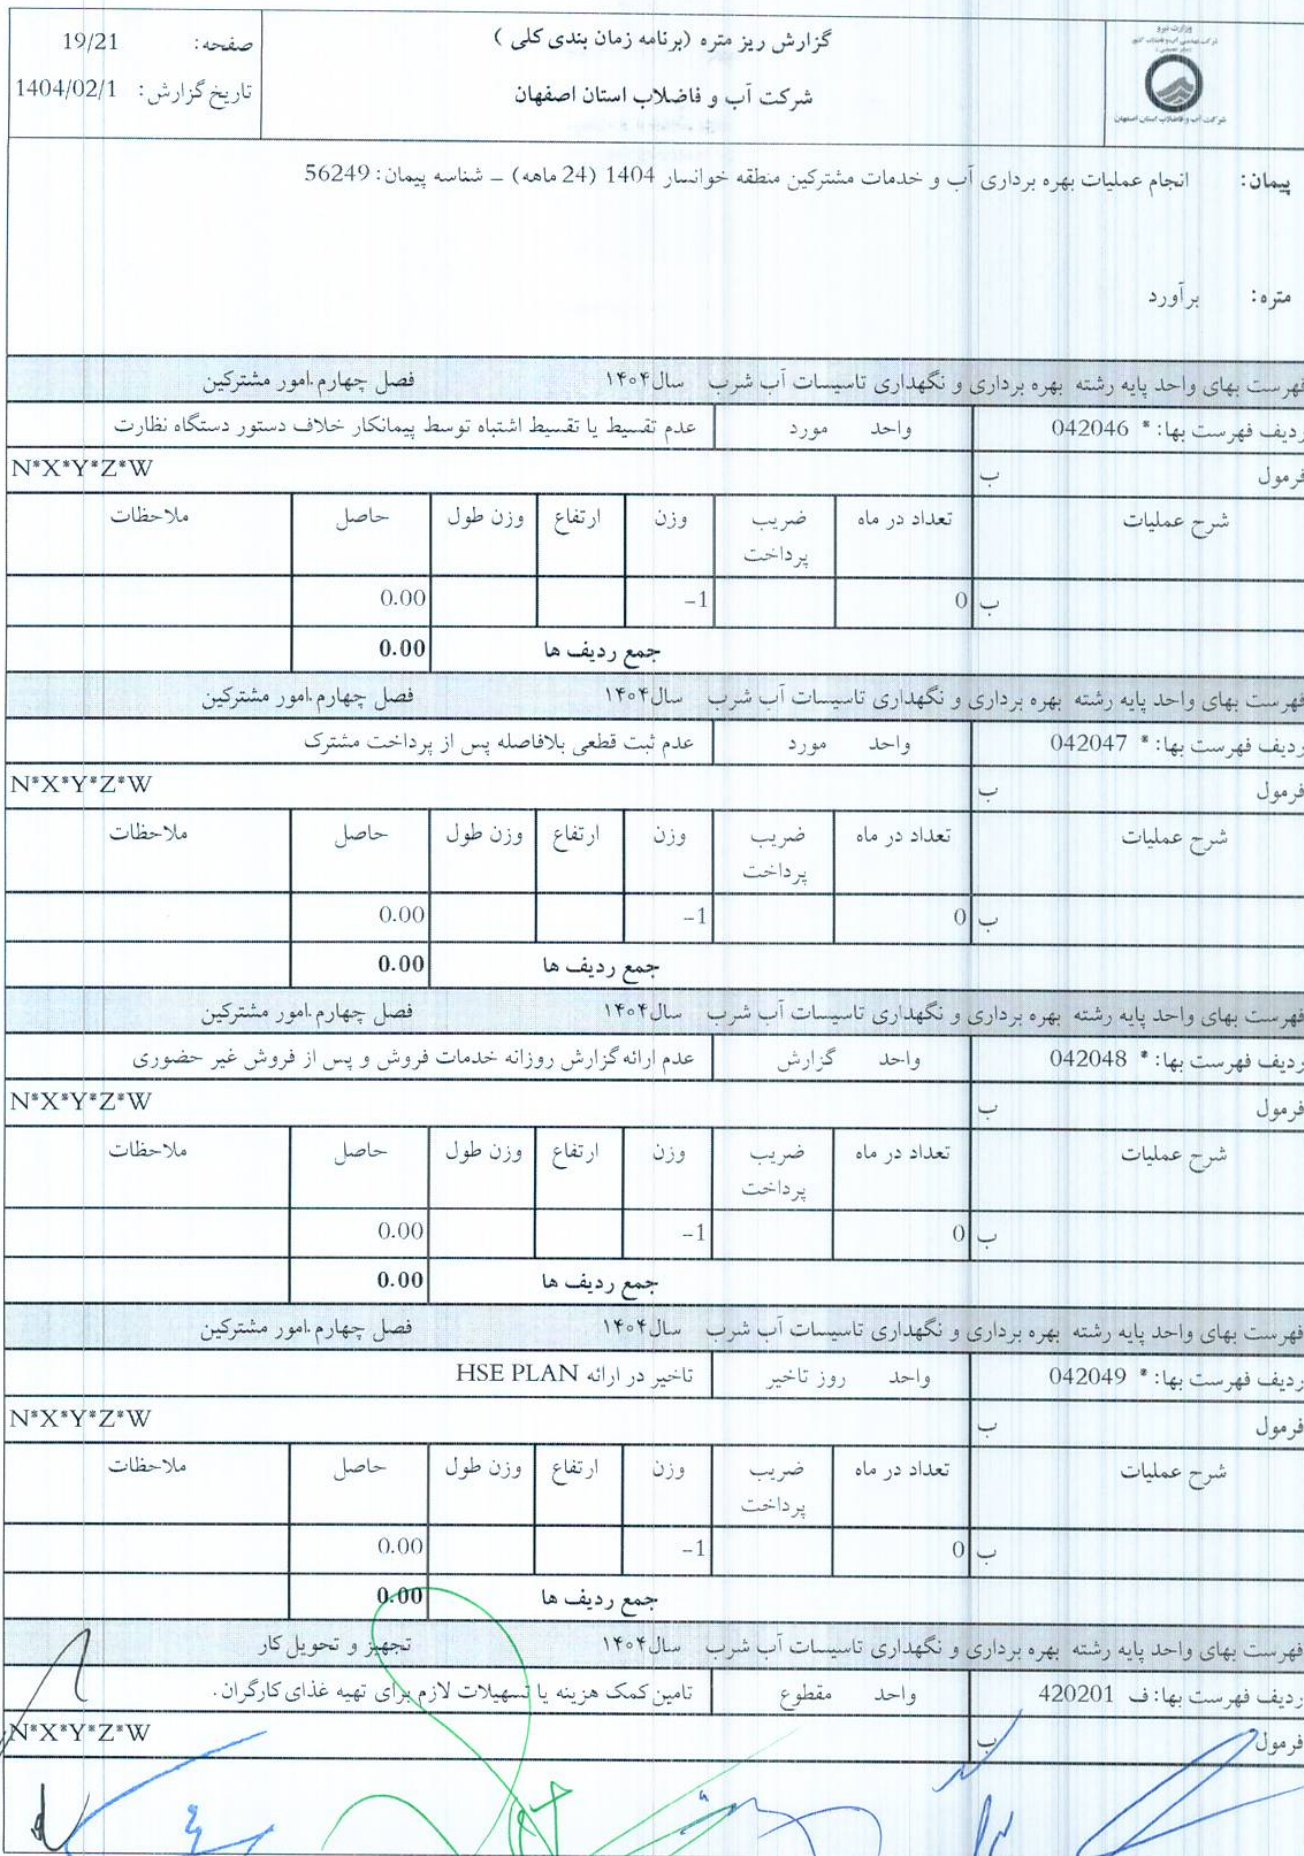 گزارش ریز متره (برنامه زمان بندی کلی )
شرکت آب و فاضلاب استان اصفهان
صفحه: 19/21
تاریخ گزارش: 1404/02/1
وزارت نیرو
شرکت آب و فاضلاب استان اصفهان
پیمان: انجام عملیات بهره برداری آب و خدمات مشترکین منطقه خوانسار 1404 (24 ماهه) _ شناسه پیمان: 56249
متره: برآورد
فهرست بهای واحد پایه رشته بهره برداری و نگهداری تاسیسات آب شرب سال ۱۴۰۴ فصل چهارم.امور مشترکین
ردیف فهرست بها: * 042046 واحد مورد عدم تقسیط یا تقسیط اشتباه توسط پیمانکار خلاف دستور دستگاه نظارت
فرمول ب N*X*Y*Z*W
شرح عملیات تعداد در ماه ضریب پرداخت وزن ارتفاع وزن طول حاصل ملاحظات
ب 0 -1 0.00
جمع ردیف ها 0.00
فهرست بهای واحد پایه رشته بهره برداری و نگهداری تاسیسات آب شرب سال ۱۴۰۴ فصل چهارم.امور مشترکین
ردیف فهرست بها: * 042047 واحد مورد عدم ثبت قطعی بلافاصله پس از پرداخت مشترک
فرمول ب N*X*Y*Z*W
شرح عملیات تعداد در ماه ضریب پرداخت وزن ارتفاع وزن طول حاصل ملاحظات
ب 0 -1 0.00
جمع ردیف ها 0.00
فهرست بهای واحد پایه رشته بهره برداری و نگهداری تاسیسات آب شرب سال ۱۴۰۴ فصل چهارم.امور مشترکین
ردیف فهرست بها: * 042048 واحد گزارش عدم ارائه گزارش روزانه خدمات فروش و پس از فروش غیر حضوری
فرمول ب N*X*Y*Z*W
شرح عملیات تعداد در ماه ضریب پرداخت وزن ارتفاع وزن طول حاصل ملاحظات
ب 0 -1 0.00
جمع ردیف ها 0.00
فهرست بهای واحد پایه رشته بهره برداری و نگهداری تاسیسات آب شرب سال ۱۴۰۴ فصل چهارم.امور مشترکین
ردیف فهرست بها: * 042049 واحد روز تاخیر تاخیر در ارائه HSE PLAN
فرمول ب N*X*Y*Z*W
شرح عملیات تعداد در ماه ضریب پرداخت وزن ارتفاع وزن طول حاصل ملاحظات
ب 0 -1 0.00
جمع ردیف ها 0.00
فهرست بهای واحد پایه رشته بهره برداری و نگهداری تاسیسات آب شرب سال ۱۴۰۴ تجهیز و تحویل کار
ردیف فهرست بها: ف 420201 واحد مقطوع تامین کمک هزینه یا تسهیلات لازم برای تهیه غذای کارگران.
فرمول ب N*X*Y*Z*W